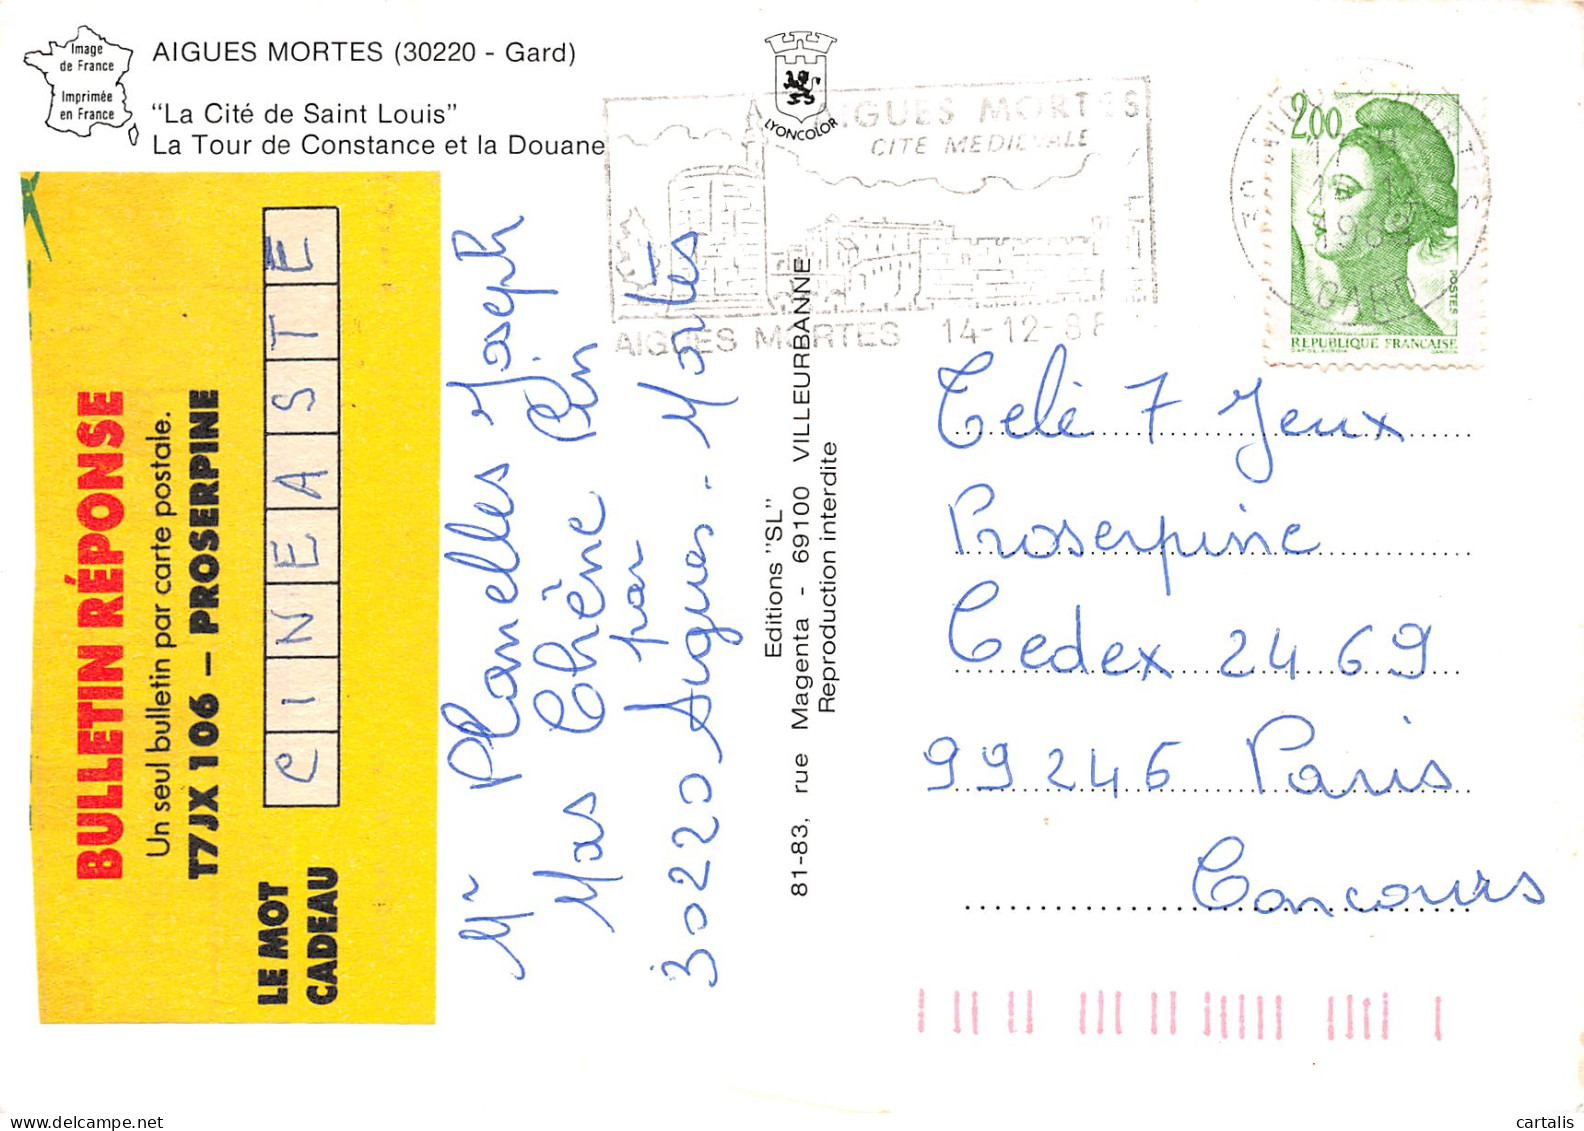 Image
de France
Imprimée
en France
AIGUES MORTES (30220 - Gard)
"La Cité de Saint Louis"
La Tour de Constance et la Douane
LYONCOLOR
AIGUES MORTES
CITE MEDIEVALE
AIGUES MORTES 14-12-8
2,00
POSTES
REPUBLIQUE FRANÇAISE
BULLETIN RÉPONSE
Un seul bulletin par carte postale.
T7JX 106 – PROSERPINE
LE MOT
CADEAU
CINEASTE
Planelles Joseph
Mas Chêne
par
30220 Aigues-Mortes
Editions "SL"
81-83, rue Magenta - 69100 VILLEURBANNE
Reproduction interdite
Télé 7 Jeux
Proserpine
Cedex 2469
99246 Paris
Concours
cartalis